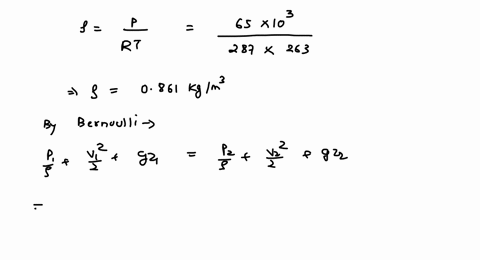 ρ = P/RT = 65 × 10³ / 287 × 263
⇒ ρ = 0.861 kg/m³
By Bernoulli →
P₁/ρ + V₁²/2 + gz₁ = P₂/ρ + V₂²/2 + gz₂